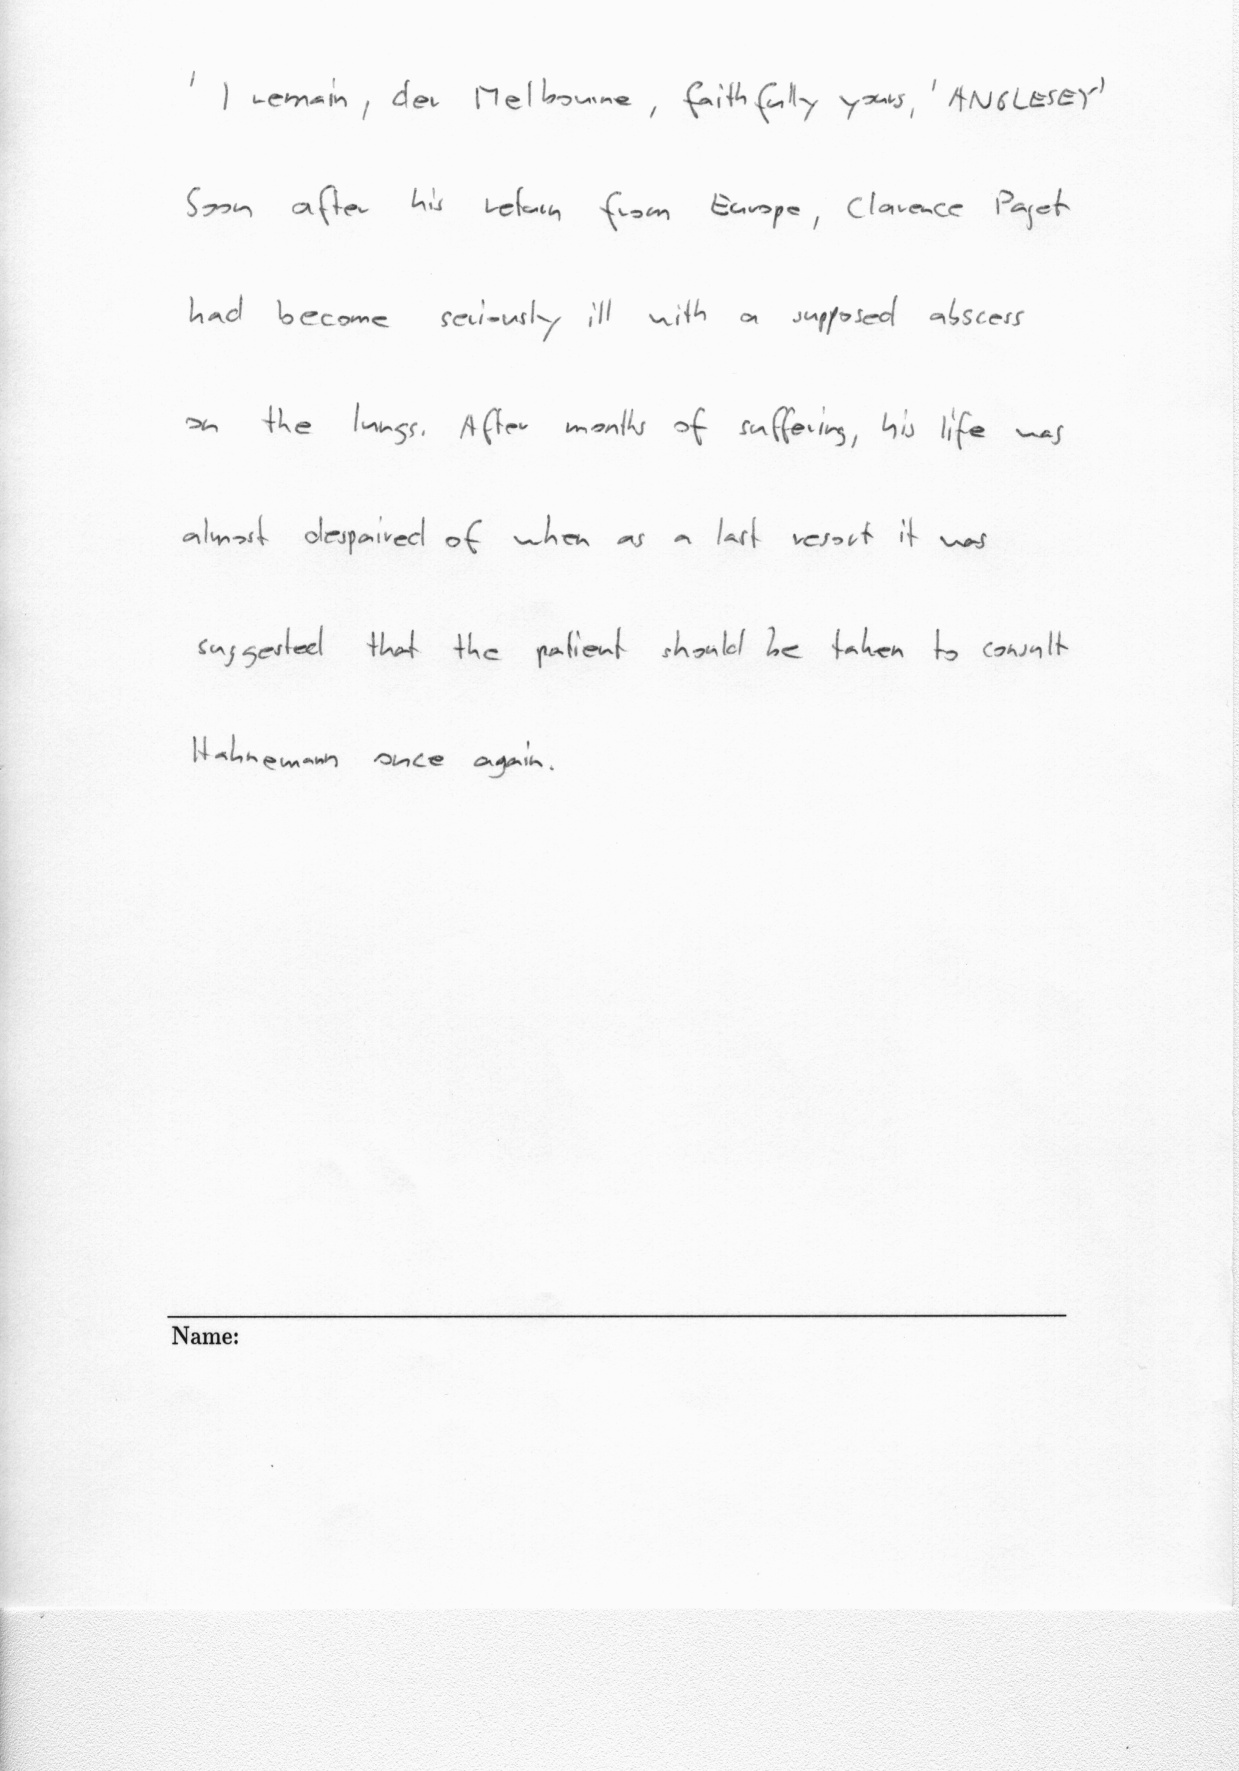 ' I remain, der Melbourne, faithfully yours, 'ANGLESEY'
Soon after his return from Europe, Clarence Paget
had become seriously ill with a supposed abscess
on the lungs. After months of suffering, his life was
almost despaired of when as a last resort it was
suggested that the patient should be taken to consult
Hahnemann once again.
Name: